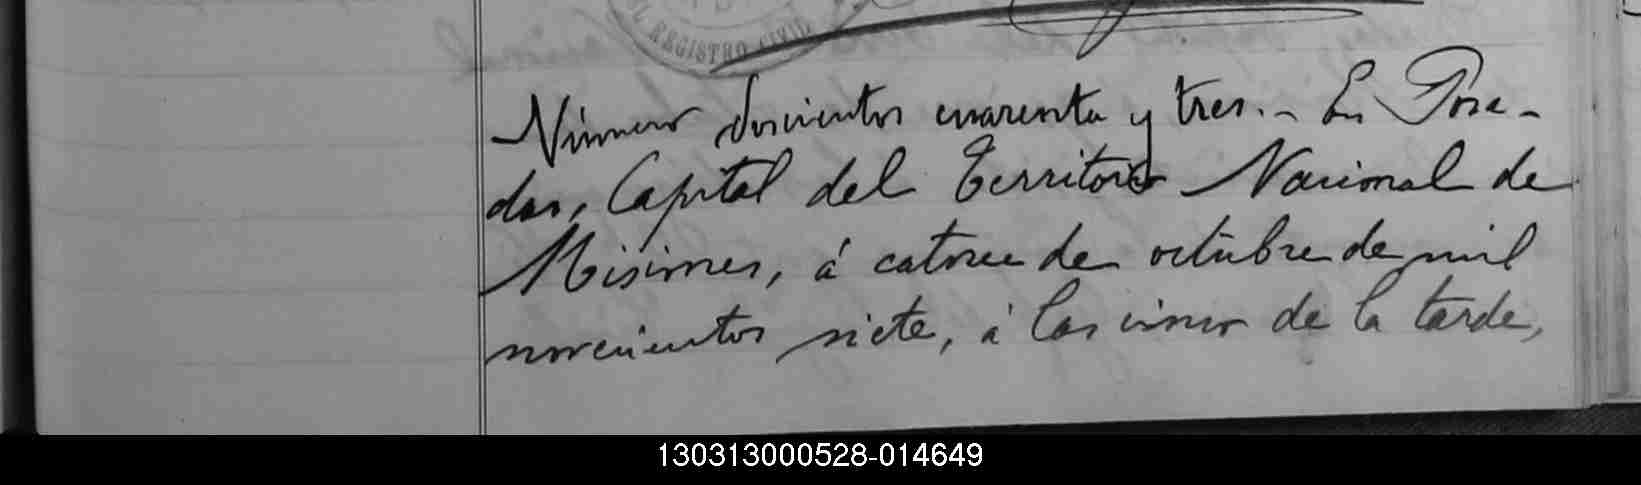 L REGISTRO CIVIL
Número doscientos cuarenta y tres.- En Posa-
das, Capital del Territorio Nacional de
Misiones, á catorce de octubre de mil
novecientos siete, á las cinco de la tarde,
130313000528-014649